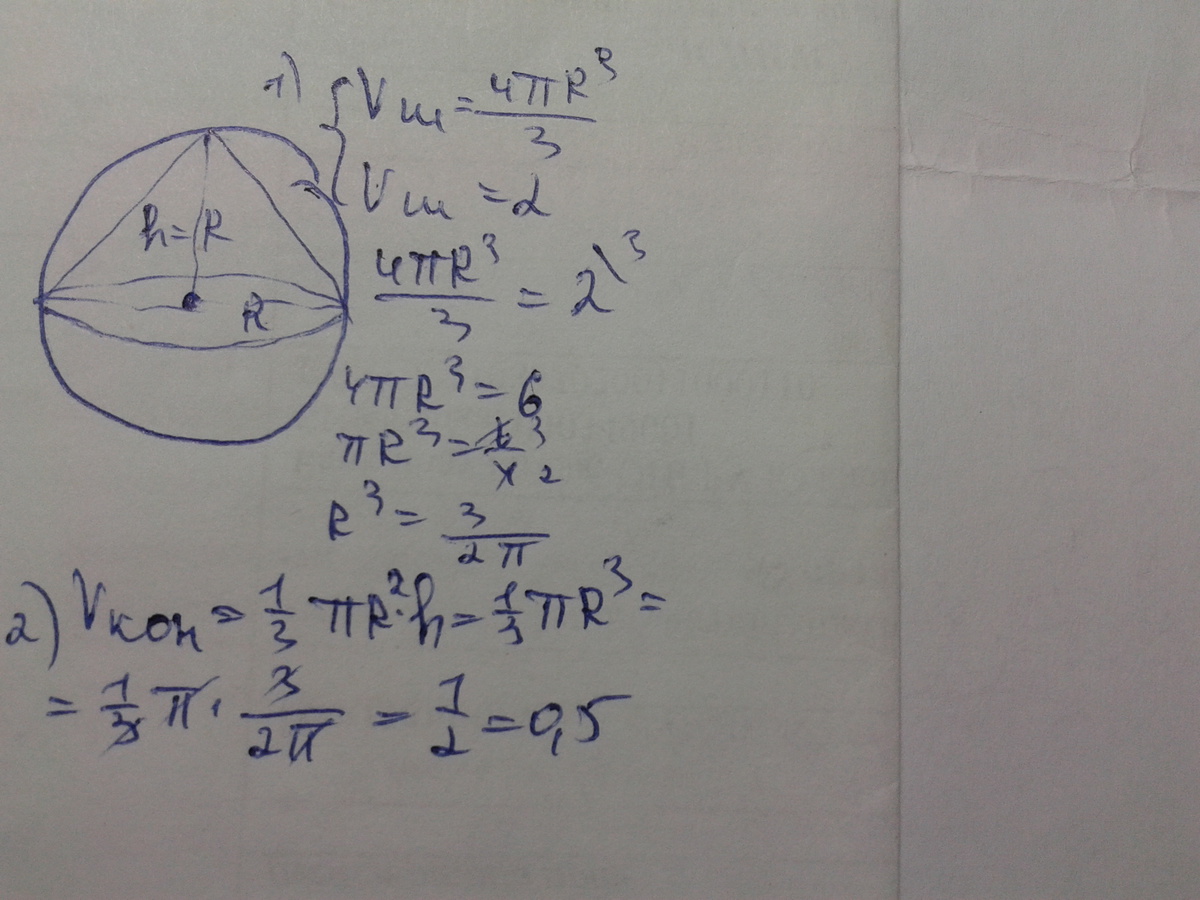 1) { Vш = 4πR³/3
Vш = 2
h = R
R
4πR³/3 = 2\³
4πR³ = 6
πR³ = 6 3/4 2
R³ = 3/2π
2) Vкон = 1/3 πR²·h = 1/3 πR³ =
= 1/3 π · 3/2π = 1/2 = 0,5